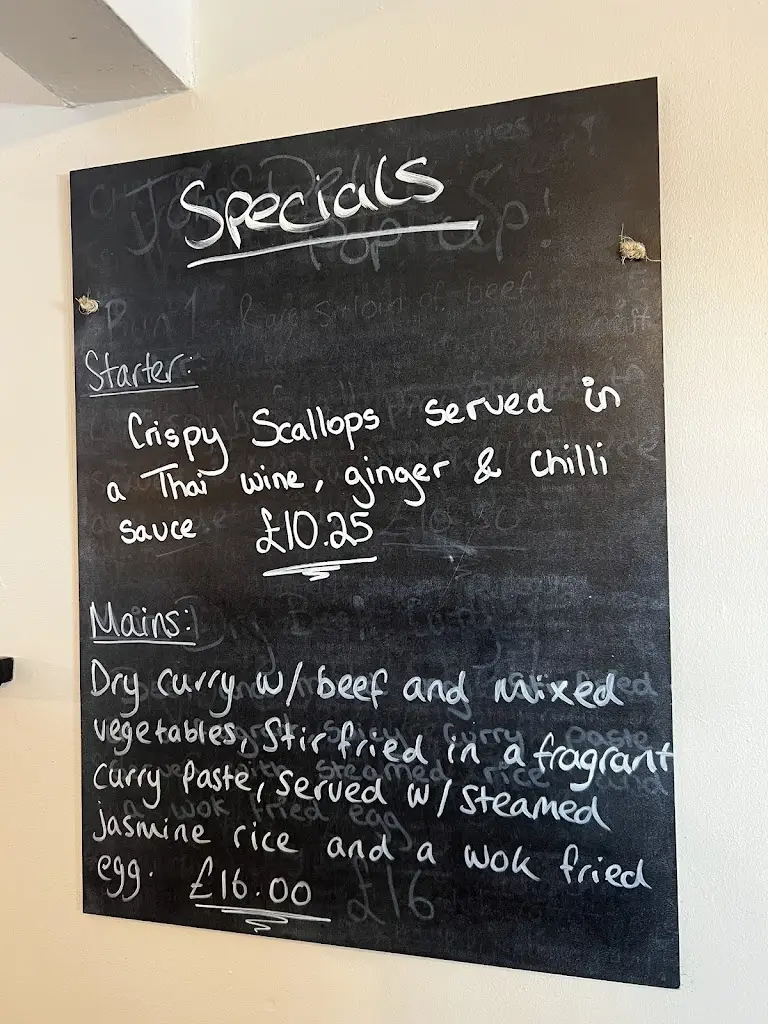 Specials
Starter:
Crispy Scallops served in
a Thai wine, ginger & chilli
sauce £10.25
Mains:
Dry curry w/ beef and mixed
vegetables, Stir fried in a fragrant
curry paste, served w/ steamed
jasmine rice and a wok fried
egg. £16.00